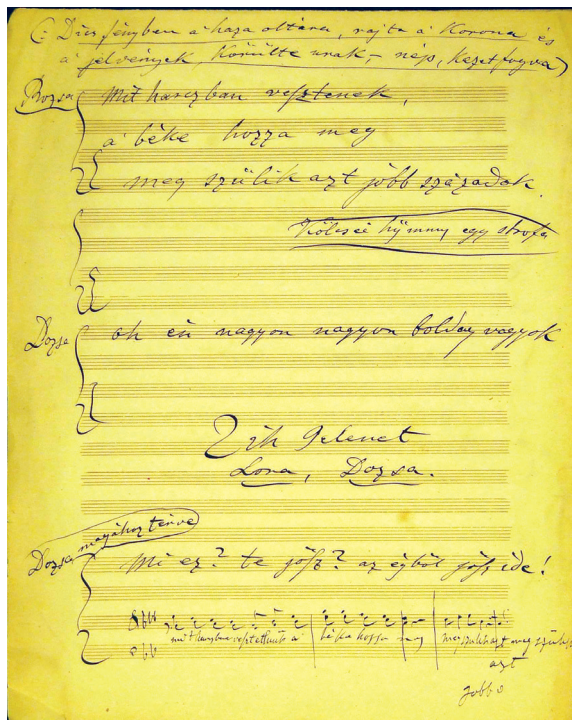 (: Dús fényben a haza oltára, rajta a Korona és
a jelvények, körülte urak, nép, kezet fogva)
Dozsa
Mit harczban vesztenek,
a béke hozza meg
meg szülik azt jobb századok.
Kölcsei hymny egy strofa
Dozsa
oh én nagyon nagyon boldog vagyok
2ik Jelenet
Lora, Dozsa.
Dozsa magához térve
Mi ez? te jösz? az égböl jösz ide!
mit harczban a
béke hozza meg
azt
jobb